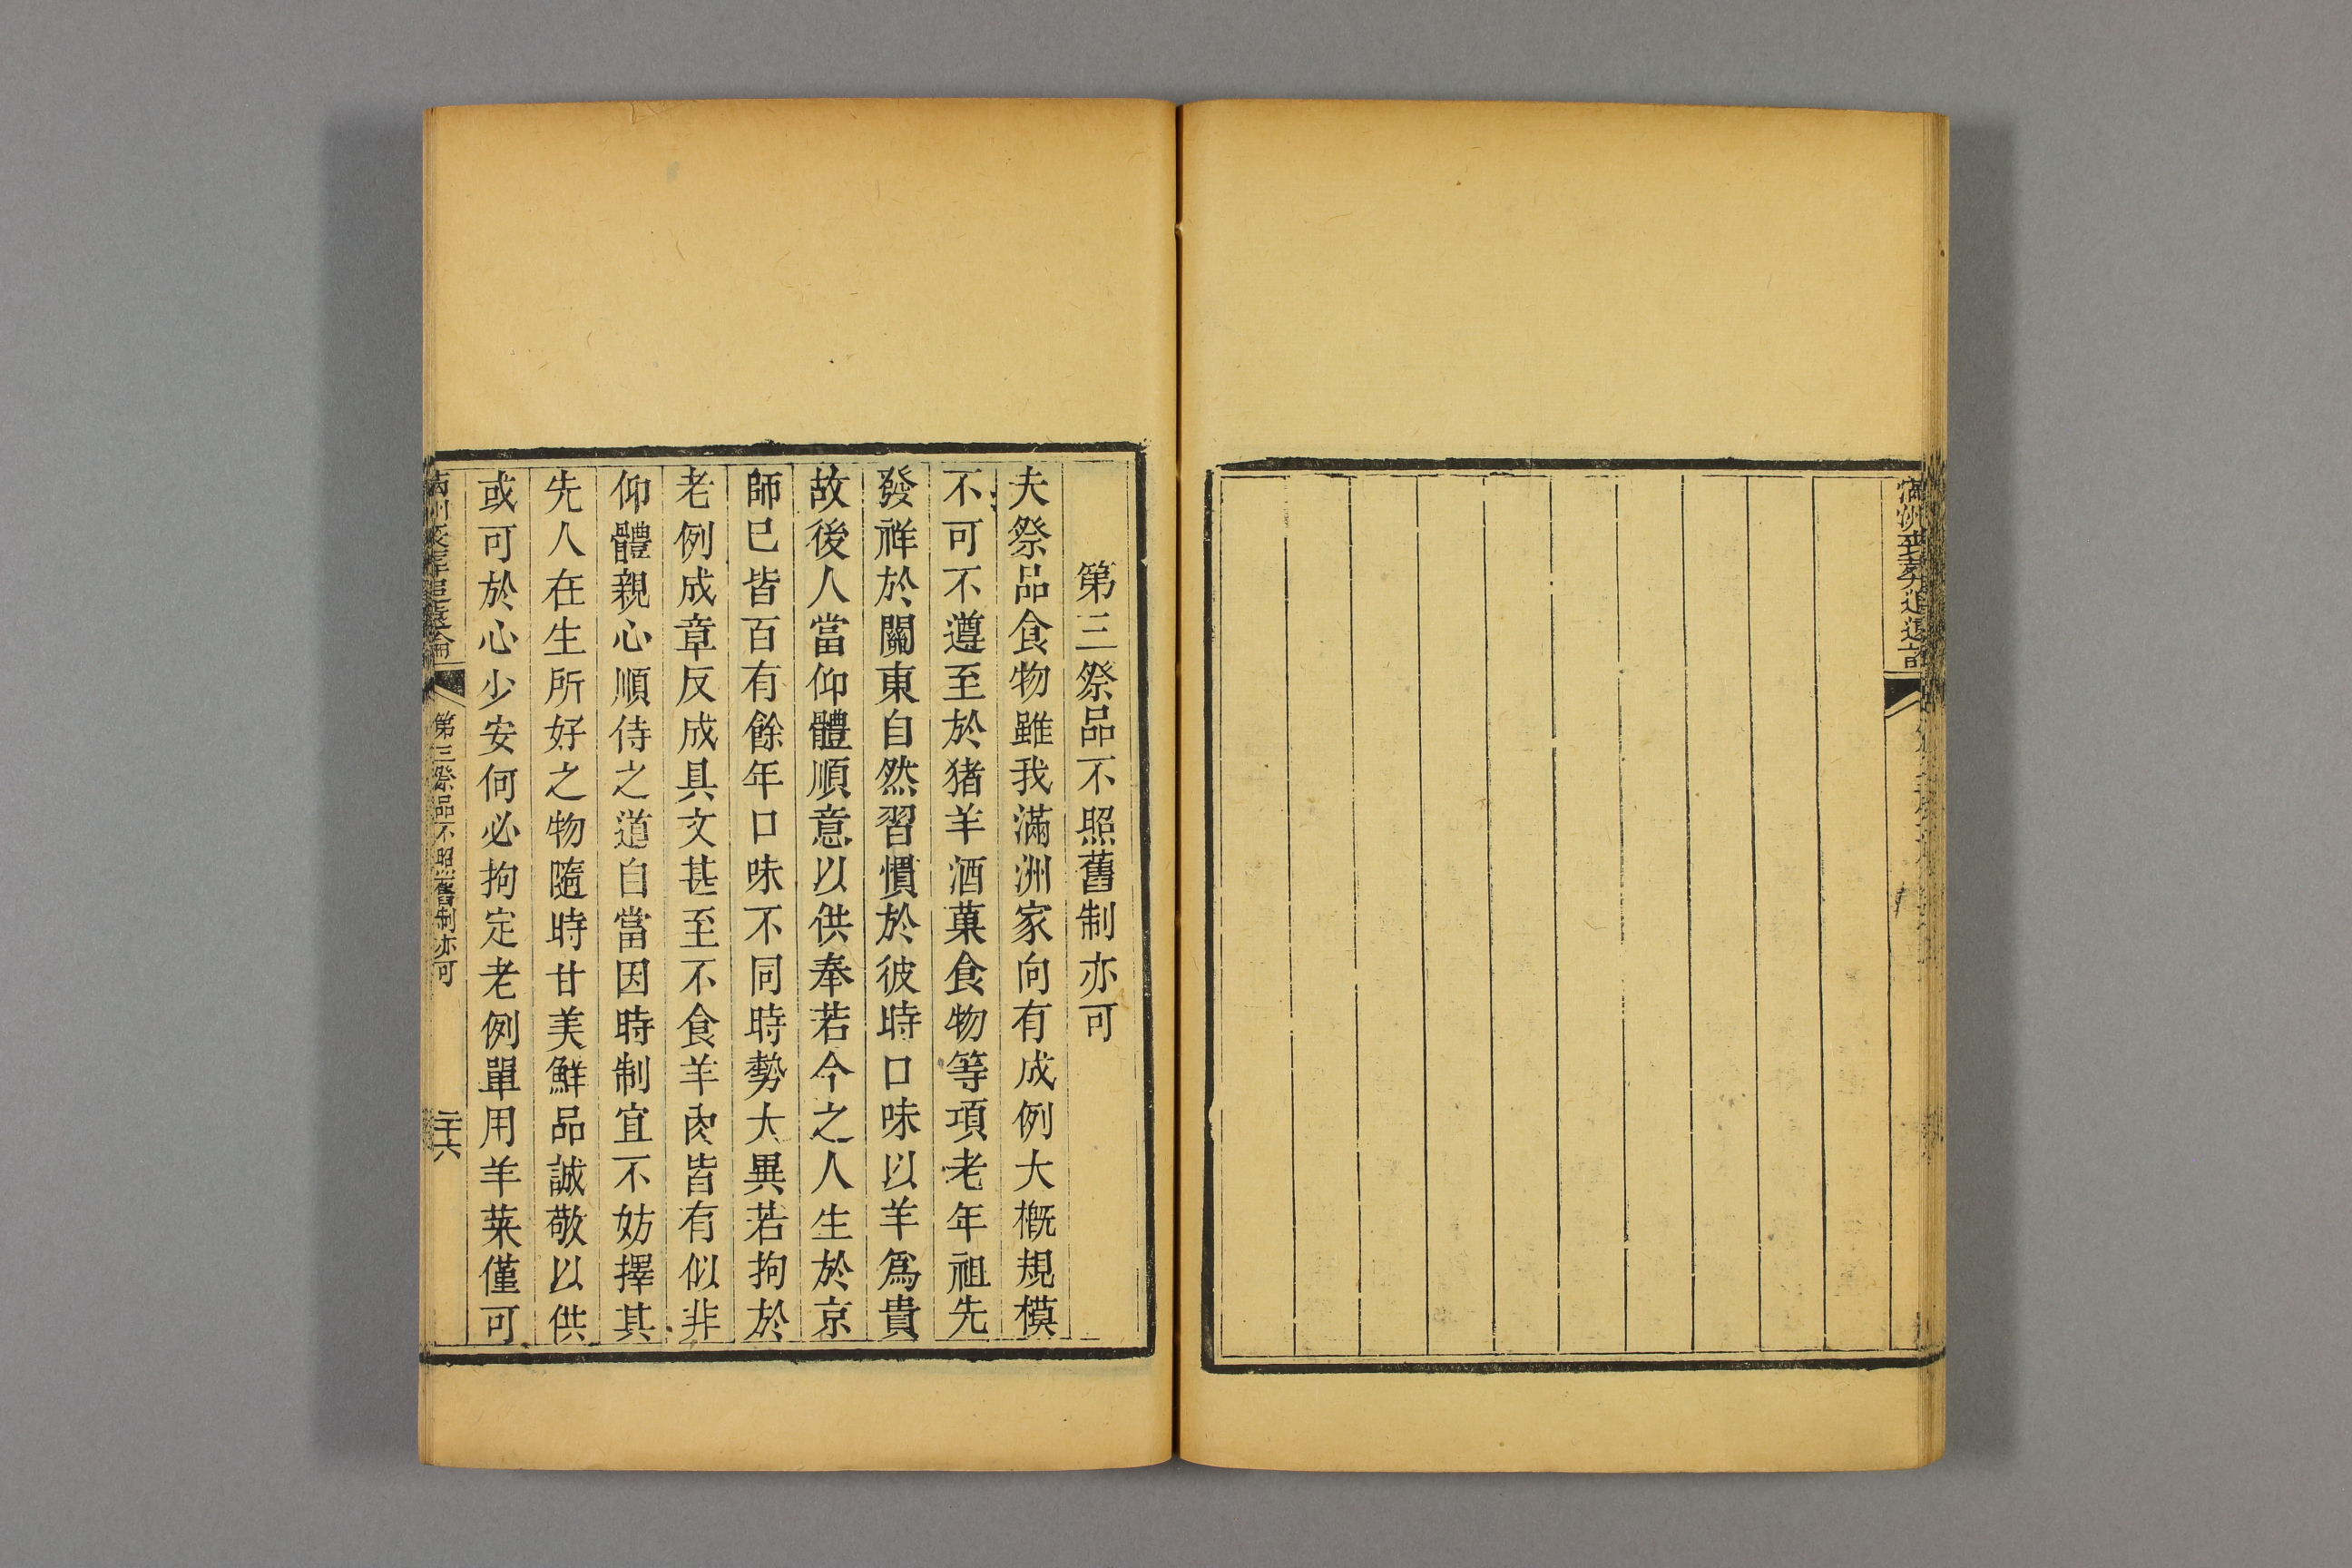 第三祭品不照舊制亦可
夫祭品食物雖我滿洲家向有成例大槪規模
不可不遵至於猪羊酒菓食物等項老年祖先
發祥於關東自然習慣於彼時口味以羊爲貴
故後人當仰體順意以供奉若今之人生於京
師已皆百有餘年口味不同時勢大異若拘於
老例成章反成具文甚至不食羊肉皆有似非
仰體親心順侍之道自當因時制宜不妨擇其
先人在生所好之物隨時甘美鮮品誠敬以供
或可於心少安何必拘定老例單用羊菜僅可
第三祭品不照舊制亦可
二十六